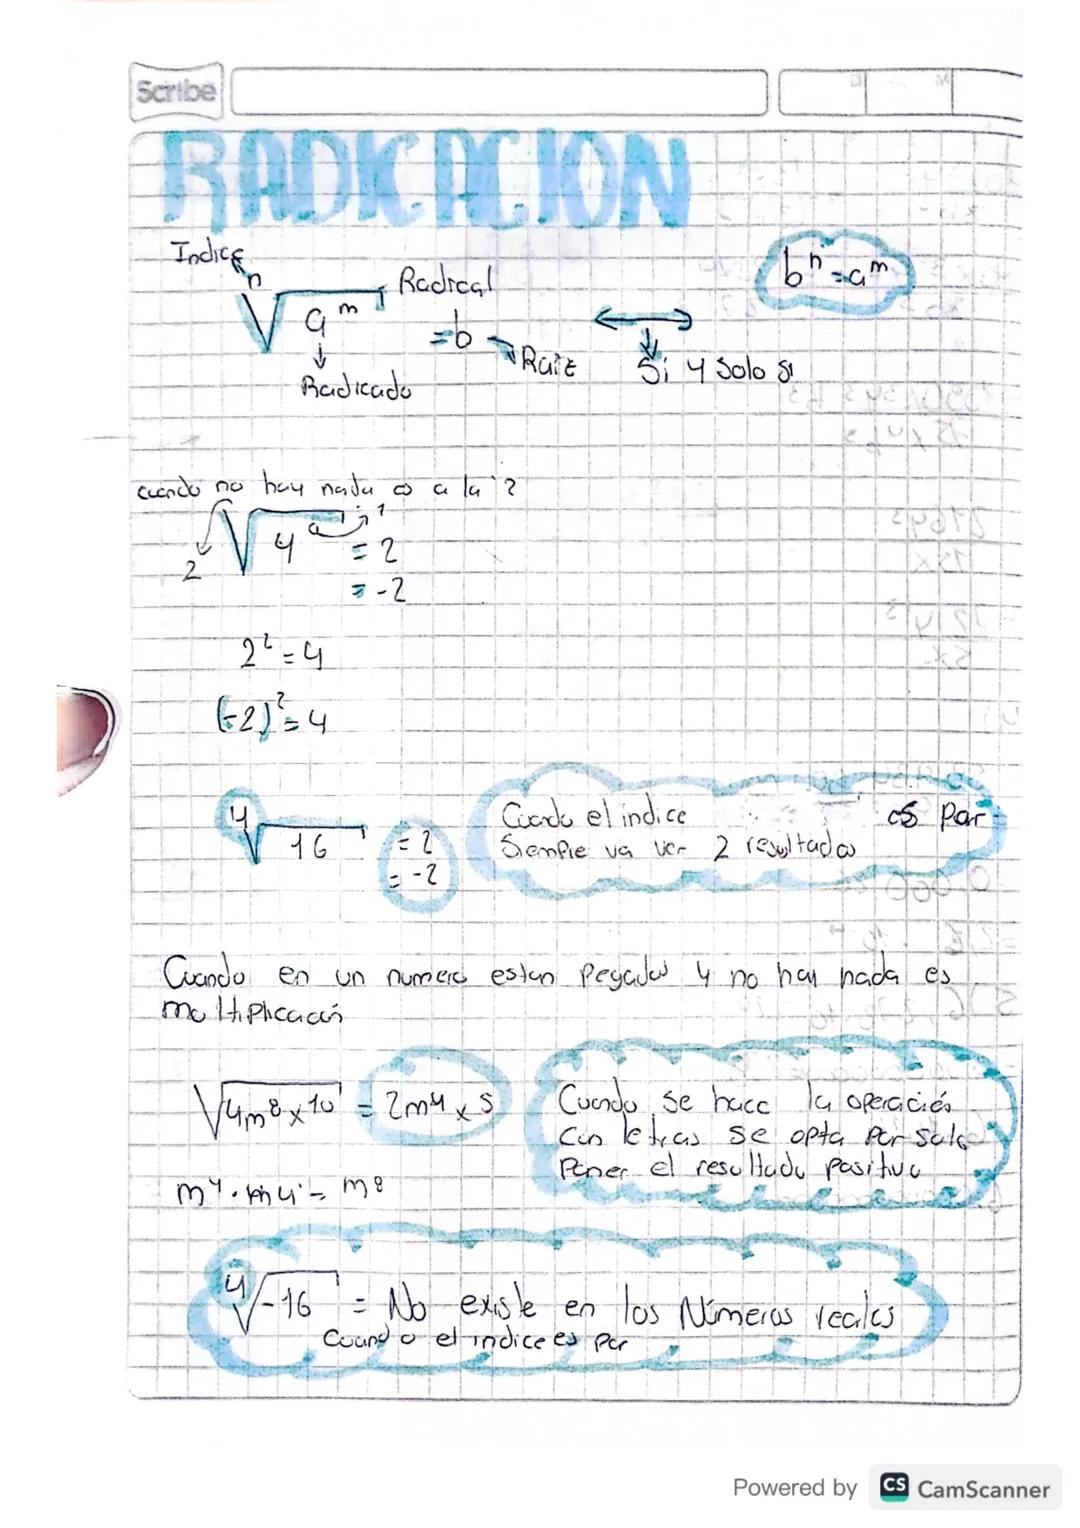 Scribe
D M
RADICACION
Indice
n
Radical
a m
=b
Raiz
Radicado
Si y Solo si
b^n = a^m
cuando no hay nada es a la ?
2 √4 1 = 2
= -2
2² = 4
(-2)² = 4
4 √16 = 2
= -2
Cuando el indice es Par
Siempre va ver 2 resultados
Cuando en un numero estan Pegados y no hay nada es
multiplicación
√4m⁸x¹⁰ = 2m⁴x⁵
m⁴·m⁴ = m⁸
Cuando se hace la operación
Con letras se opta por solo
Poner el resultado positivo
4 √-16 = No existe en los Números reales
Cuando el indice es Par
Powered by CS CamScanner